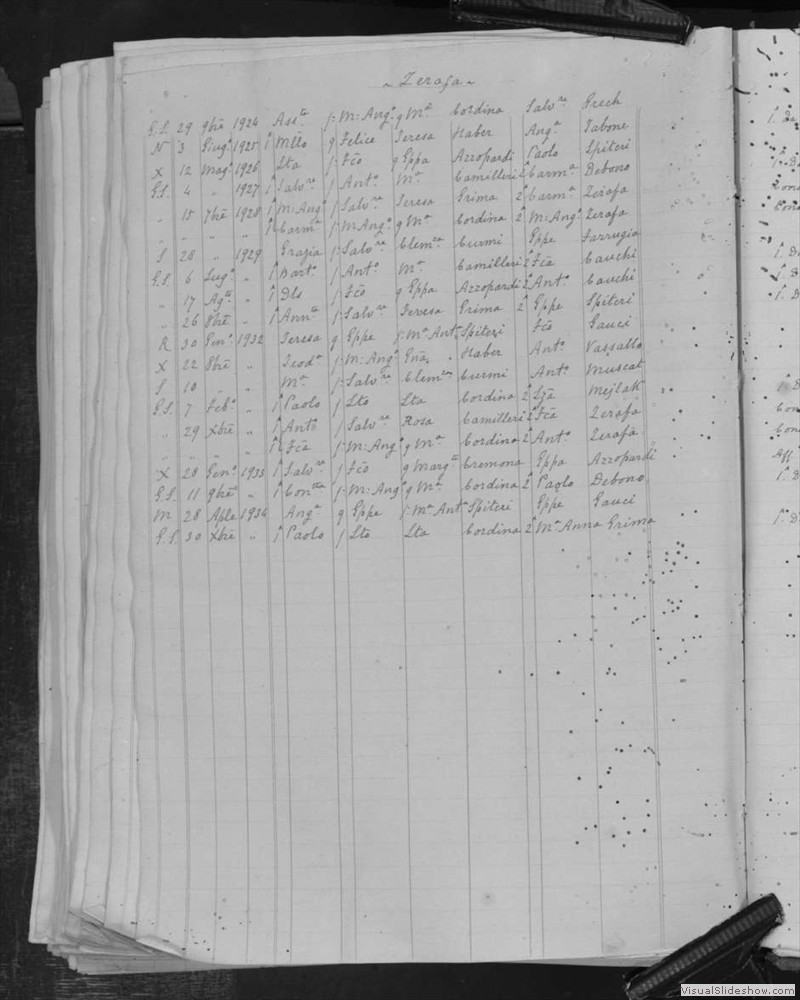 ~ Zerafa ~
G.S. 29 9bre 1924 Ass.ta f: M: Ang.o q M.a Cordina Salv.re Grech
N 3 Giug.o 1925 1 Mllo q Felice Teresa Haber Ang.a Tabone
X 12 Mag.o 1926 Lta f: Fco q Eppa Azzopardi Paolo Spiteri
G.S. 4 " 1927 1 Salv.re f: Ant.o M.a Camilleri 2 Carm.a Debono
" 15 7bre 1928 1 M: Ang.o f: Salv.re Teresa Grima 2 Carm.a Zerafa
" " " " 1 Carm.a f: M: Ang.o q M.a Cordina 2 M: Ang.o Zerafa
S 28 " 1929 Grazia f: Salv.re Clem.za Curmi Eppe Farrugia
G.S. 6 Lug.o " 1 Bart.o f: Ant.o M.a Camilleri 2 Fca Cauchi
" 17 Ag.to " 1 Dls f: Fco q Eppa Azzopardi 2 Ant.o Cauchi
" 26 8bre " 1 Ann.ta f: Salv.re Teresa Grima 2 Eppe Spiteri
R 30 Gen.o 1932 Teresa q Eppe f: M.a Ant.a Spiteri Fco Gauci
X 22 8bre " Teod.a f: M: Ang.o Haber Ant.o Vassallo
S 10 " " M.a f: Salv.re Clem.za Curmi Ant.o Muscat
G.S. 7 Feb.o " 1 Paolo f: Lto Lta Cordina 2 Lza Mejlak
" 29 Xbre " 1 Ant.o f: Salv.re Rosa Camilleri 2 Fca Zerafa
" " " " 1 Fca f: M: Ang.o q M.a Cordina 2 Ant.o Zerafa
X 28 Gen.o 1933 1 Salv.re f: Fco q Marg.ta Cremona Eppa Azzopardi
G.S. 11 9bre " 1 Con.ta f: M: Ang.o q M.a Cordina 2 Paolo Debono
M 28 Aple 1934 Ang.a q Eppe f: M.a Ant.a Spiteri Eppe Gauci
G.S. 30 Xbre " 1 Paolo f: Lto Lta Cordina 2 M.a Anna Grima
VisualSlideshow.com